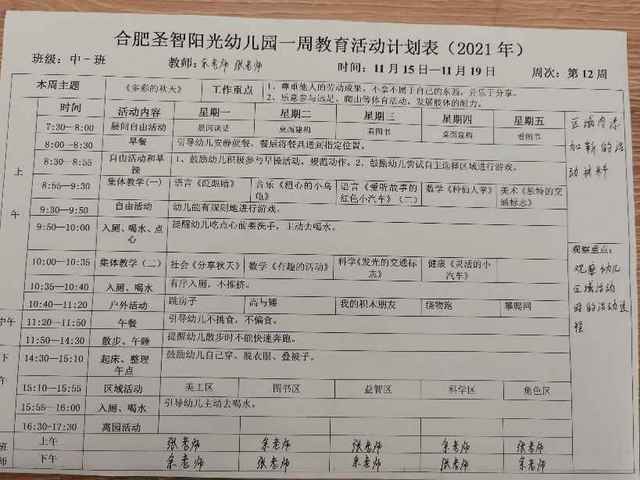 合肥圣智阳光幼儿园一周教育活动计划表（2021 年）
班级：中一班 教师：余老师 张老师 时间：11月15日—11月19日 周次：第12周
本周主题 《多彩的秋天》 工作重点 1、尊重他人的劳动成果，不拿不属于自己的东西，并乐于分享。
2、乐意参与远足、爬山等体育活动，发展肢体的耐力。
时间 活动内容 星期一 星期二 星期三 星期四 星期五
上午
7:30—8:00 晨间自由活动 晨间谈话 桌面建构 看图书 桌面建构 看图书
8:00—8:30 早餐 引导幼儿安静就餐，餐后将餐具送到指定位置。
8:30—8:55 自由活动和早操 1、鼓励幼儿积极参与早操活动，规范动作。2、鼓励幼儿尝试自主选择区域进行游戏。
8:55—9:30 集体教学（一） 音乐《粗心的小乌龟》 语言《爱听故事的红色小汽车》（二） 数学《种仙人掌》 美术《独特的交通标志》
9:30—9:50 自由活动 幼儿能有规则地进行游戏。
9:50—10:00 入厕、喝水、点心 提醒幼儿吃点心前要洗手，主动去喝水。
10:00—10:35 集体教学（二） 社会《分享秋天》 数学《有趣的活动》 科学《发光的交通标志》 健康《灵活的小汽车》
10:35—10:40 入厕、喝水 有序入厕，不推挤。
10:40—11:20 户外活动 跳房子 高与矮 我的积木朋友 攀爬网
中午
11:20—11:50 午餐 引导幼儿不挑食、不偏食。
11:50—14:30 散步、午睡 提醒幼儿散步时不能快速奔跑。
下午
14:30—15:10 起床、整理 午点 鼓励幼儿自己穿、脱衣服、叠被子。
15:10—15:55 区域活动 美工区 图书区 益智区 科学区 角色区
15:55—16:00 入厕、喝水 引导幼儿主动去喝水。
16:30-17:30 离园活动
班 上午 张老师 余老师 张老师 余老师 张老师
师 下午 余老师 张老师 余老师 张老师 余老师
区域内添
加新的活
动材料
观察重点：
观察幼儿
区域活动
时的活动过
程